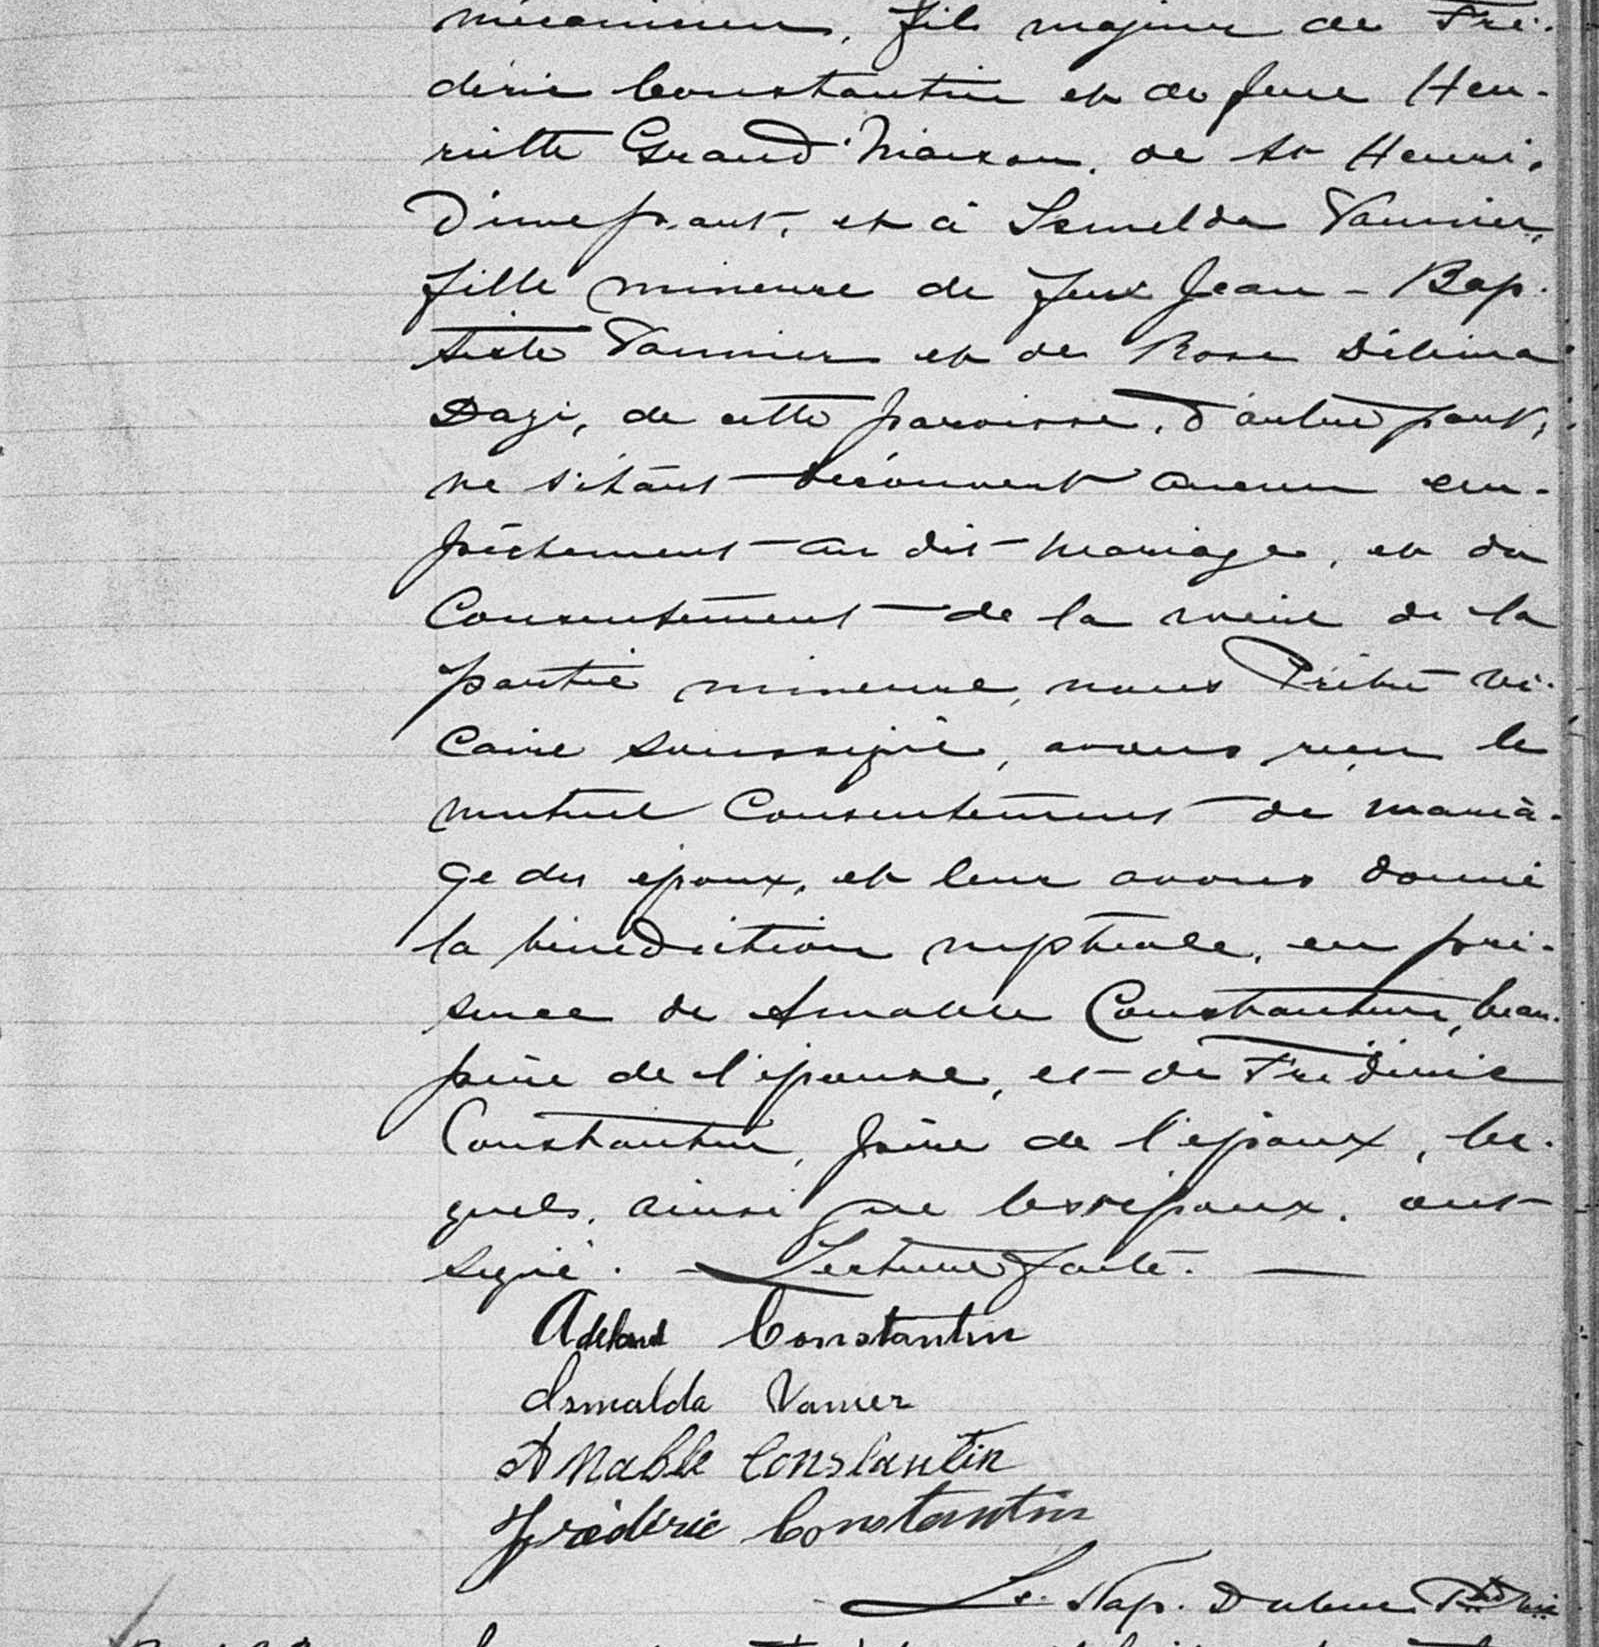 mécanicien, fils majeur de Fré-
déric Constantin et de feue Hen-
riette Grand'Maison, de St Henri,
D'une part, et à Ismelda Vannier,
fille mineure de feux Jean-Bap-
tiste Vannier et de Rose Délima
Dagé, de cette paroisse, d'autre part,
ne s'étant découvert aucun em-
pêchement au dit mariage, et du
Consentement de la mère de la
partie mineure, nous Prêtre vi-
caire soussigné, avons reçu le
mutuel Consentement de maria-
ge des époux, et leur avons donné
la bénédiction nuptiale, en pré-
sence de Amable Constantin, beau-
père de l'épouse, et de Frédéric
Constantin, père de l'époux, les-
quels, ainsi que les époux, ont
signé. — Lecture faite. —
Adelard Constantin
Ismalda Vanier
Amable Constantin
Frédéric Constantin
Nap. Dubuc Ptre Vic